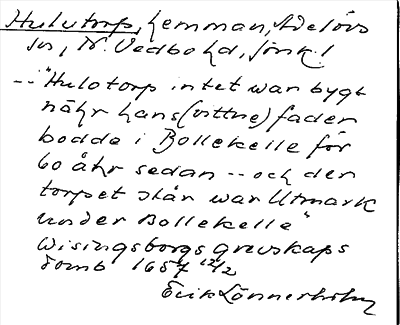 Hulutorp, hemman, Adelövs
sn, N. Vedbo hd, Jönk. l
--"Hulotorp intet war bygt
nähr hans (vittne) fader
bodde i Bollekelle för
60 åhr sedan -- och der
torpet står war Utmark
under Bollekelle"
Wisingsborgs grevskaps
domb 1657 12/2
Erik Lönnerholm